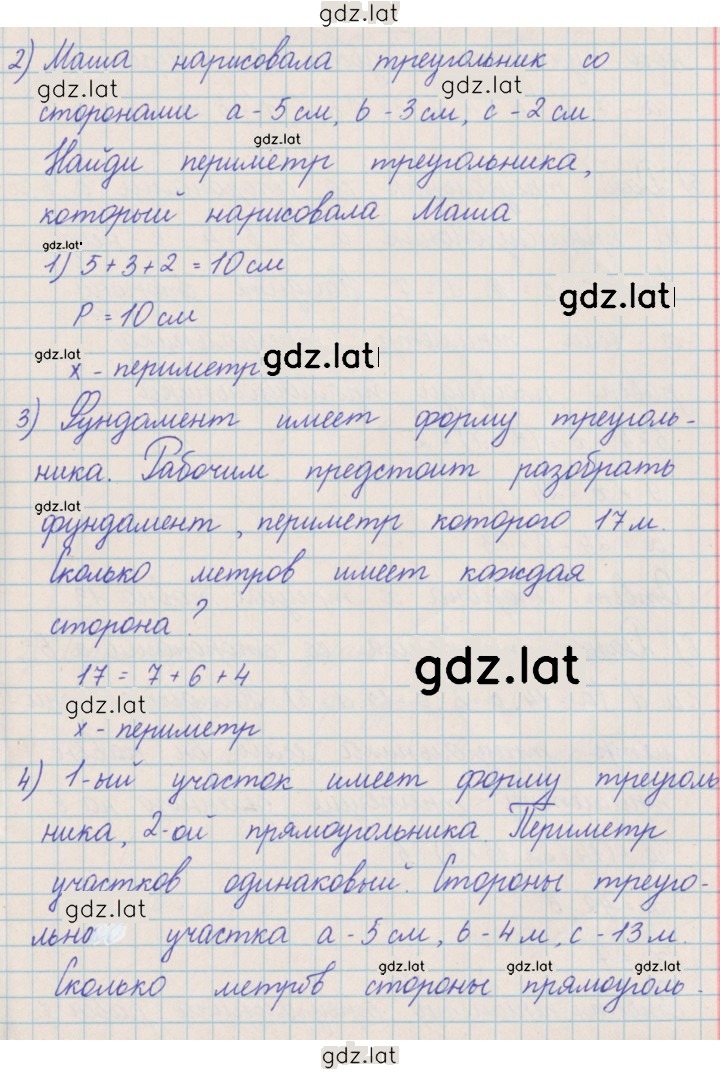 gdz.lat
2) Маша нарисовала треугольник со
gdz.lat gdz.lat
сторонами a - 5 см, b - 3 см, c - 2 см.
gdz.lat
Найди периметр треугольника,
который нарисовала Маша
gdz.lat
1) 5 + 3 + 2 = 10 см
gdz.lat
P = 10 см
gdz.lat gdz.lat
x - периметр
3) Фундамент имеет форму треуголь-
ника. Рабочим предстоит разобрать
gdz.lat
фундамент, периметр которого 17 м.
Сколько метров имеет каждая
сторона?
gdz.lat
17 = 7 + 6 + 4
gdz.lat
x - периметр
4) 1-ый участок имеет форму треуголь
ника, 2-ой прямоугольника. Периметр
участков одинаковый. Стороны треуго-
gdz.lat
льно участка a - 5 см, b - 4 м, c - 13 м.
gdz.lat gdz.lat gdz.lat
Сколько метров стороны прямоуголь-
gdz.lat